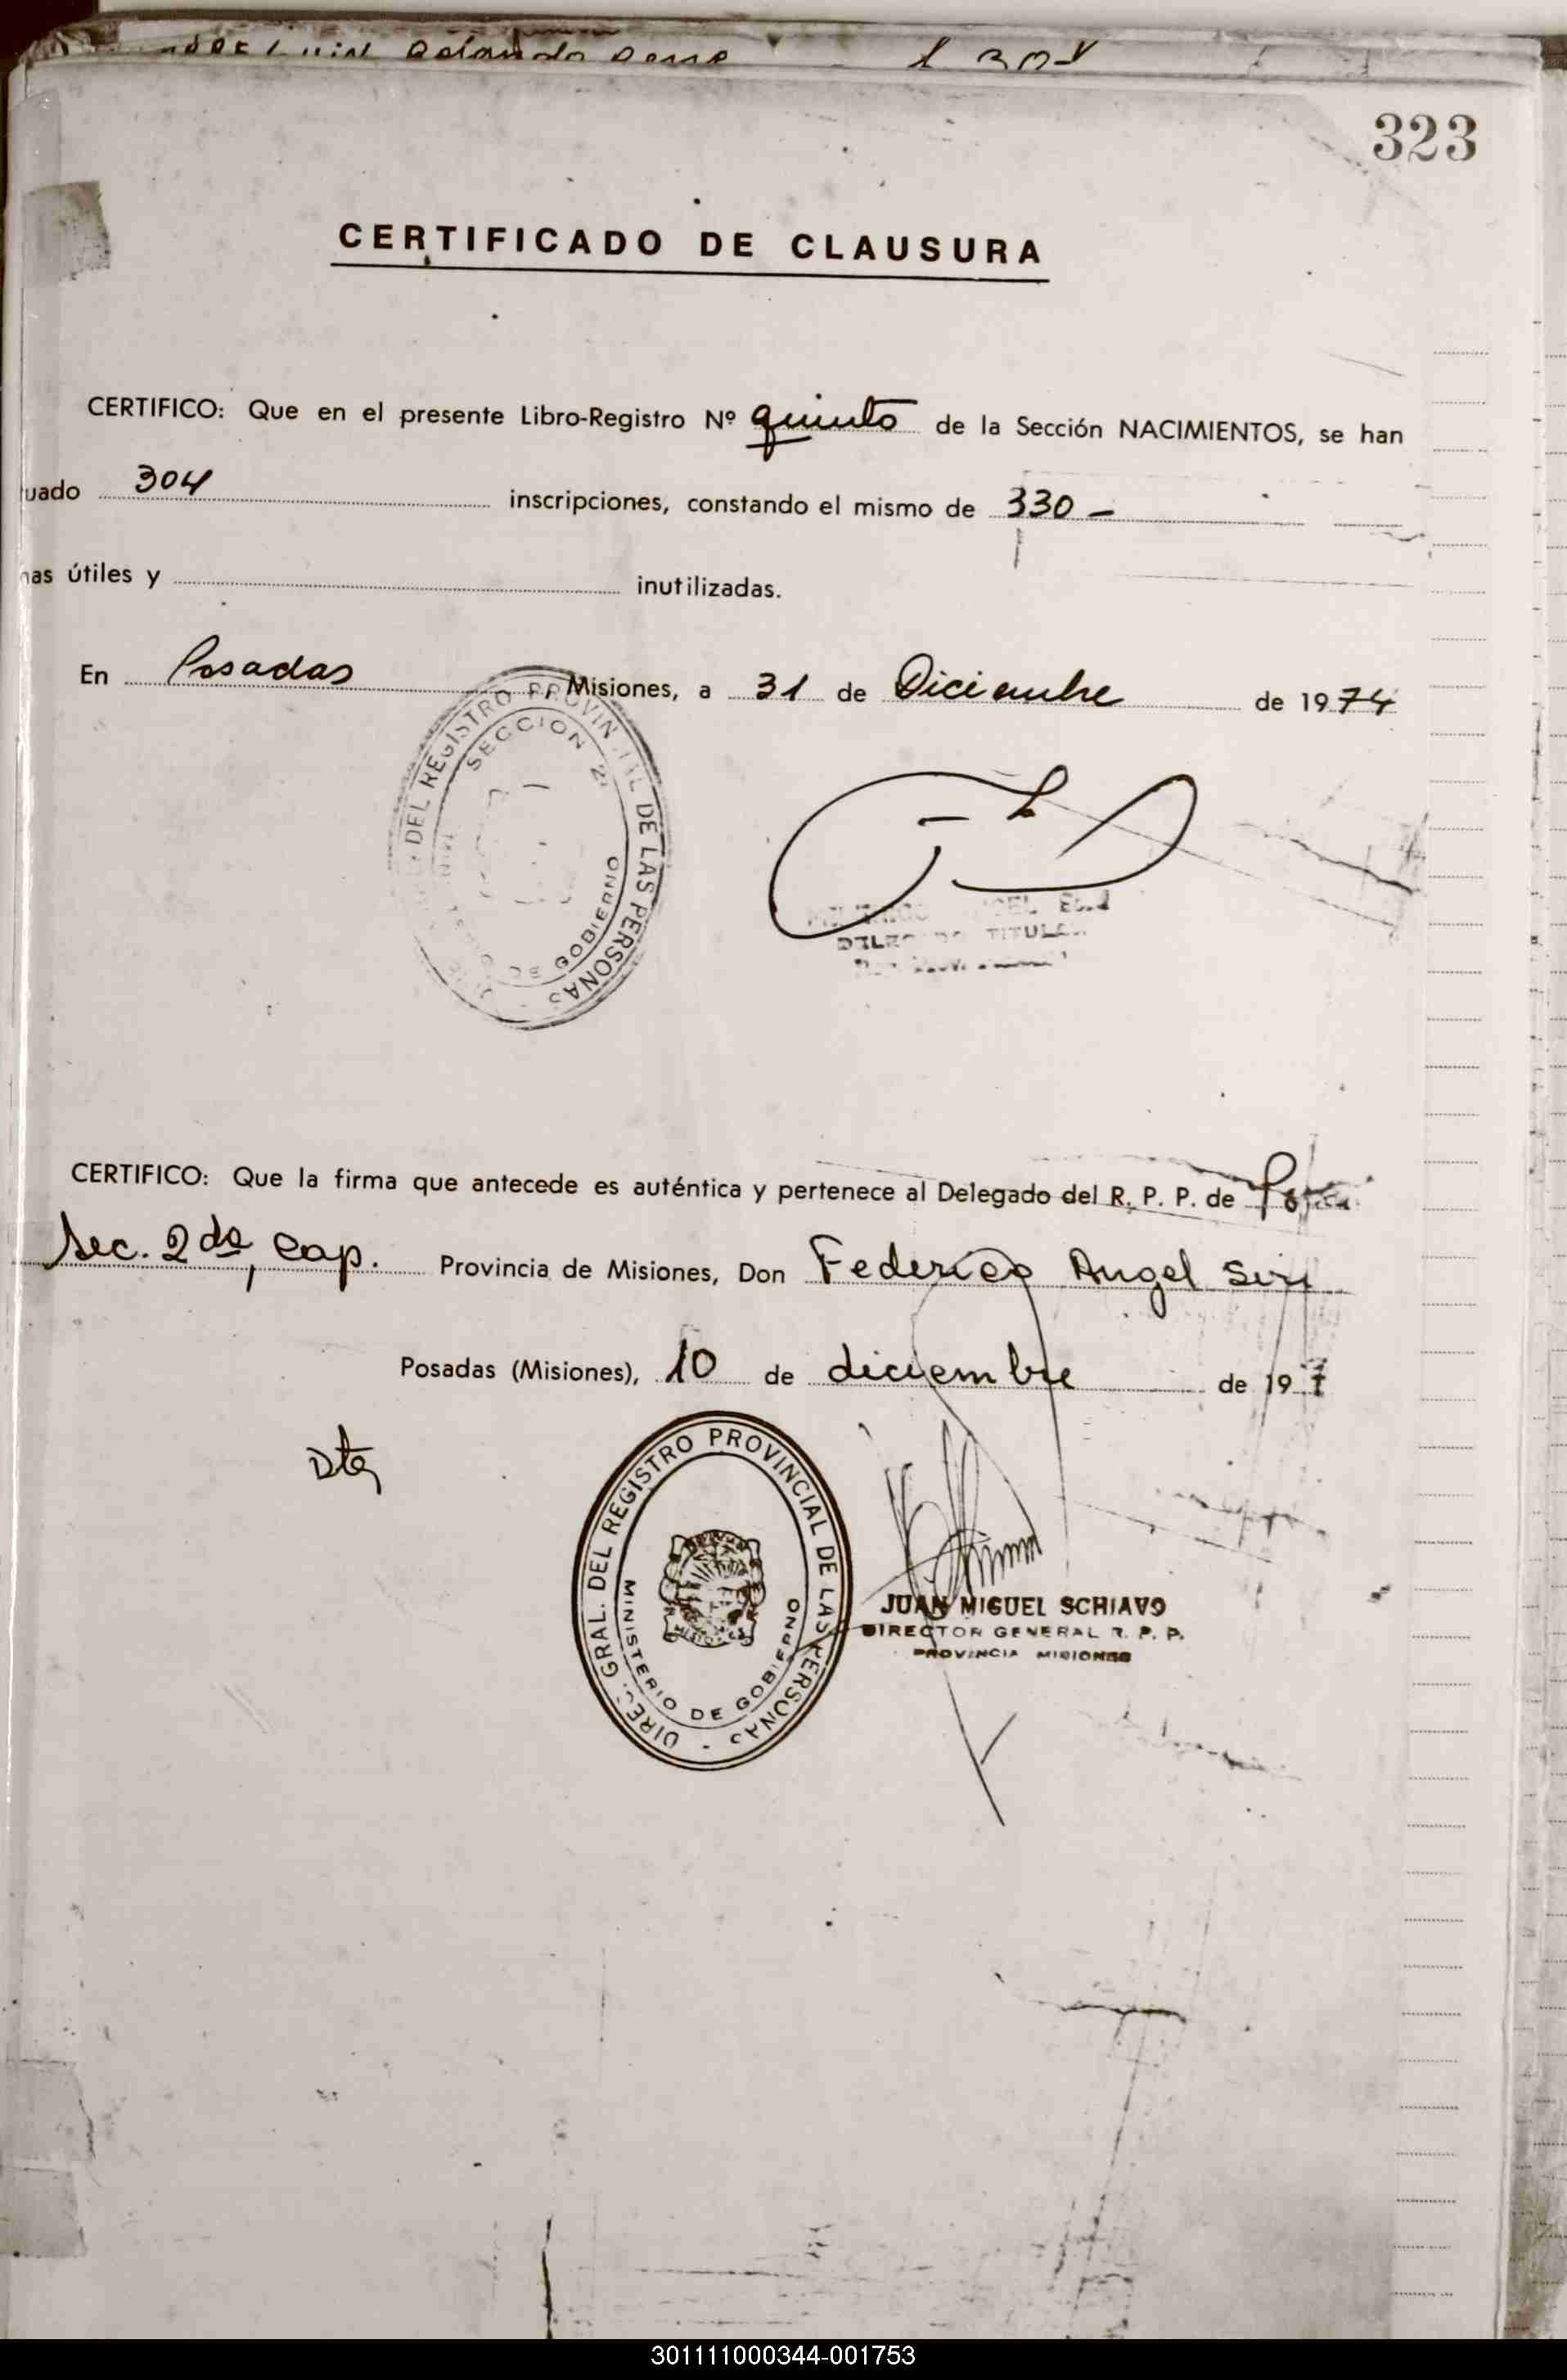 323
CERTIFICADO DE CLAUSURA
CERTIFICO: Que en el presente Libro-Registro Nº quinto de la Sección NACIMIENTOS, se han
uado 304 inscripciones, constando el mismo de 330 -
nas útiles y inutilizadas.
En Posadas Misiones, a 31 de Diciembre de 1974
DEL REGISTRO PROVINCIAL DE LAS PERSONAS
SECCION 2ª
DE GOBIERNO
DELEGADO TITULAR
CERTIFICO: Que la firma que antecede es auténtica y pertenece al Delegado del R. P. P. de
Sec. 2da, Cap. Provincia de Misiones, Don Federico Angel Siri
Posadas (Misiones), 10 de diciembre de 197
DIREC. GRAL. DEL REGISTRO PROVINCIAL DE LAS PERSONAS -
MINISTERIO DE GOBIERNO
MISIONES
JUAN MIGUEL SCHIAVO
DIRECTOR GENERAL R. P. P.
PROVINCIA MISIONES
301111000344-001753